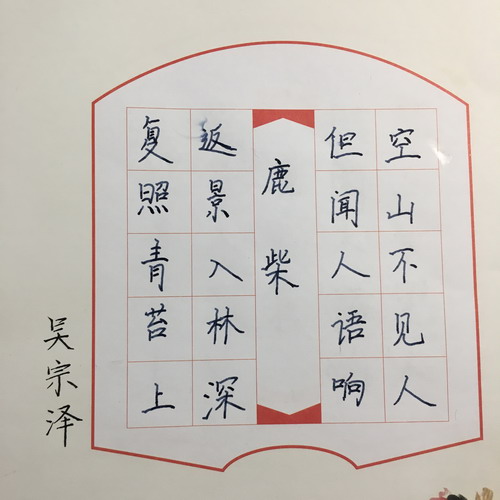 空山不见人
但闻人语响
鹿柴
返景入林深
复照青苔上
吴宗泽